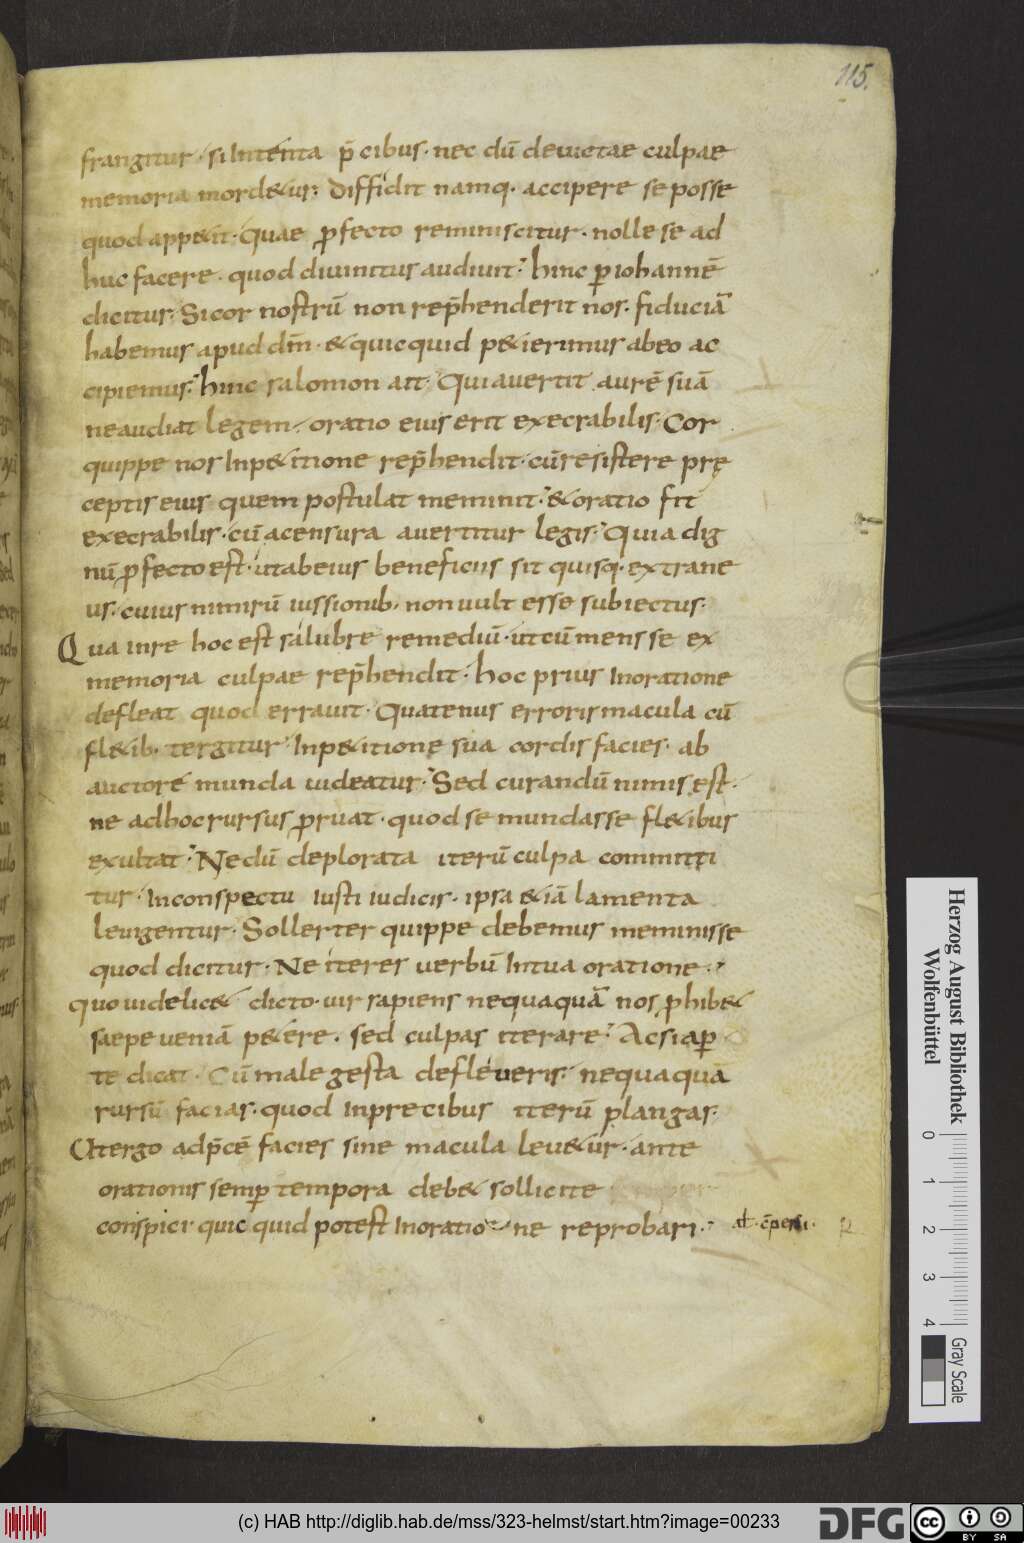 115.
frangitur· si Intenta p̄cibus· nec dū deuictae culpae
memoria mord&ur; diffidit namq· accipere se posse
quod app&it· quae ꝓfecto reminiscitur· nolle se ad
huc facere· quod diuinitus audiuit; hinc ꝑ iohannē
dicitur; Si cor nostrū non rep̄henderit nos· fiduciā
habemus apud dm̄· & quicquid p&ierimus ab eo ac
cipiemus; hinc salomon ait· Qui auertit aurē suā
ne audiat legem· oratio eius erit execrabilis· Cor
quippe nos In p&itione rep̄hendit· cū resistere prę
ceptis eius quem postulat meminit; & oratio fit
execrabilis· cū a censura auertitur legis; Quia dig
nū ꝓfecto est· ut ab eius beneficiis sit quisq· extrane
us· cuius nimirū iussionib· non uult esse subiectus·
Qua in re hoc est salubre remediū· ut cū mens se ex
memoria culpae rep̄hendit· hoc prius In oratione
defleat quod errauit· Quatenus erroris macula cū
fl&ib· tergitur· In p&itione sua cordis facies· ab
auctore munda uideatur; Sed curandū nimis est·
ne ad hoc rursus ꝓruat· quod se mundasse fl&ibus
exultat; Ne dū deplorata iterū culpa committi
tur· In conspectu iusti iudicis· ipsa &iā lamenta
leuigentur· Sollerter quippe debemus meminisse
quod dicitur· Ne iteres uerbū In tua oratione·
quo uidelic& dicto· uir sapiens nequaquā nos ꝓhib&
saepe ueniā p&ere· sed culpas iterare; Ac si aꝑ
te dicat· Cū male gesta defleueris· nequaquā
rursū facias· quod In precibus iterū plangas·
Ut ergo ad p̄cē facies sine macula leu&ur· ante
orationis semꝑ tempora deb& sollicite
conspici· quicquid potest In oratione reprobari·
Herzog August Bibliothek
Wolfenbüttel
0 1 2 3 4
Gray Scale
(c) HAB http://diglib.hab.de/mss/323-helmst/start.htm?image=00233
DFG
cc BY SA